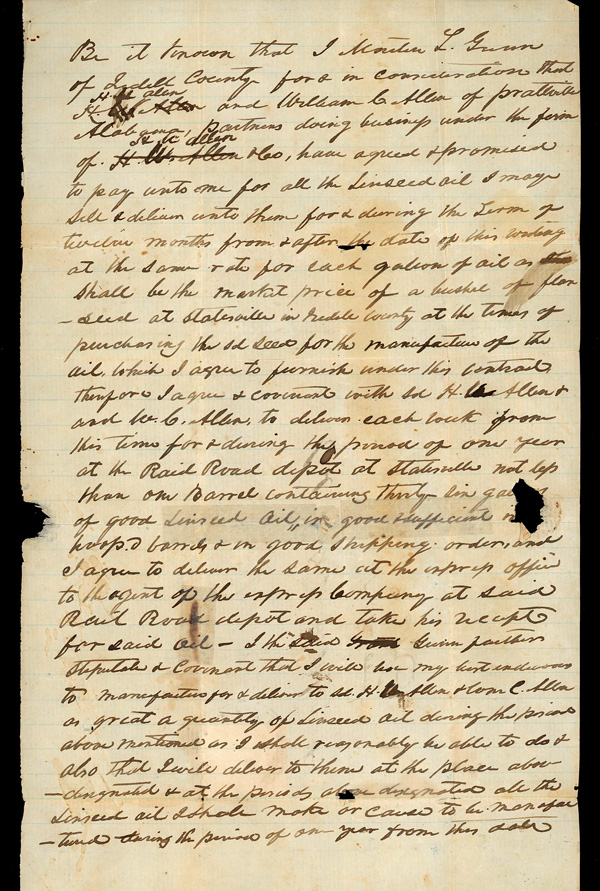 Be it known that I L. Gunn
of Iredell County for & in consideration that
H W Allen
H W Allen and William C Allen of prattville
Alabama, Partners doing business under the firm
H W Allen
of H. W. Allen & Co, have agreed & promised
to pay unto me for all the Linseed oil I may
sell & deliver unto them for & during the Term of
twelve months from & after the date of this writing
at the same rate for each gallon of oil as
shall be the market price of a bushel of flax
-seed at Statesville in Iredell County at the times of
purchasing the sd seed for the manufacture of the
oil. Which I agree to furnish under this contract,
therefore I agree & covenant with sd H. W Allen &
and W. C. Allen, to deliver each week from
this time for & during the period of one year
at the Raid Road depot at Statesville not less
than one Barrel containing thirty six
of good Linseed Oil, in good & sufficient
hoop.d barrels & in good shipping order, and
I agree to deliver the same at the express office
to the agent of the express Company at said
Rail Road depot and take his receipt
for said oil – I the said Gunn further
stipulate & Covenant that I will use my best endeavors
to manufacture for & deliver to sd. H. W Allen & Wm C. Allen
as great a quantity of Linseed oil during the period
above mentioned as I shall reasonably be able to do &
also that I will deliver to them at the place above
-designated & at the periods above designated all the
Linseed oil I shall make or cause to be manufac
-tured during the period of one year from this date